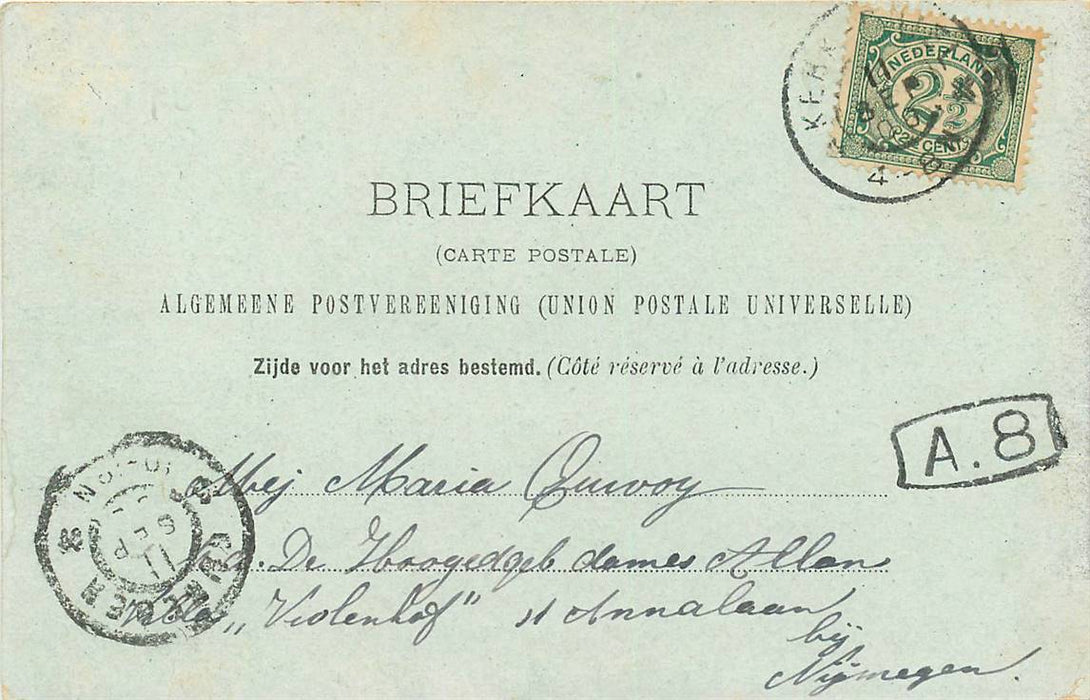 NEDERLAND
2½
CENT
4
BRIEFKAART
(CARTE POSTALE)
ALGEMEENE POSTVEREENIGING (UNION POSTALE UNIVERSELLE)
Zijde voor het adres bestemd. (Côté réservé à l'adresse.)
A.8
Mej Maria
De Hoogedgeb dames Allan
Villa „Violenhof" st Annalaan
bij
Nijmegen.